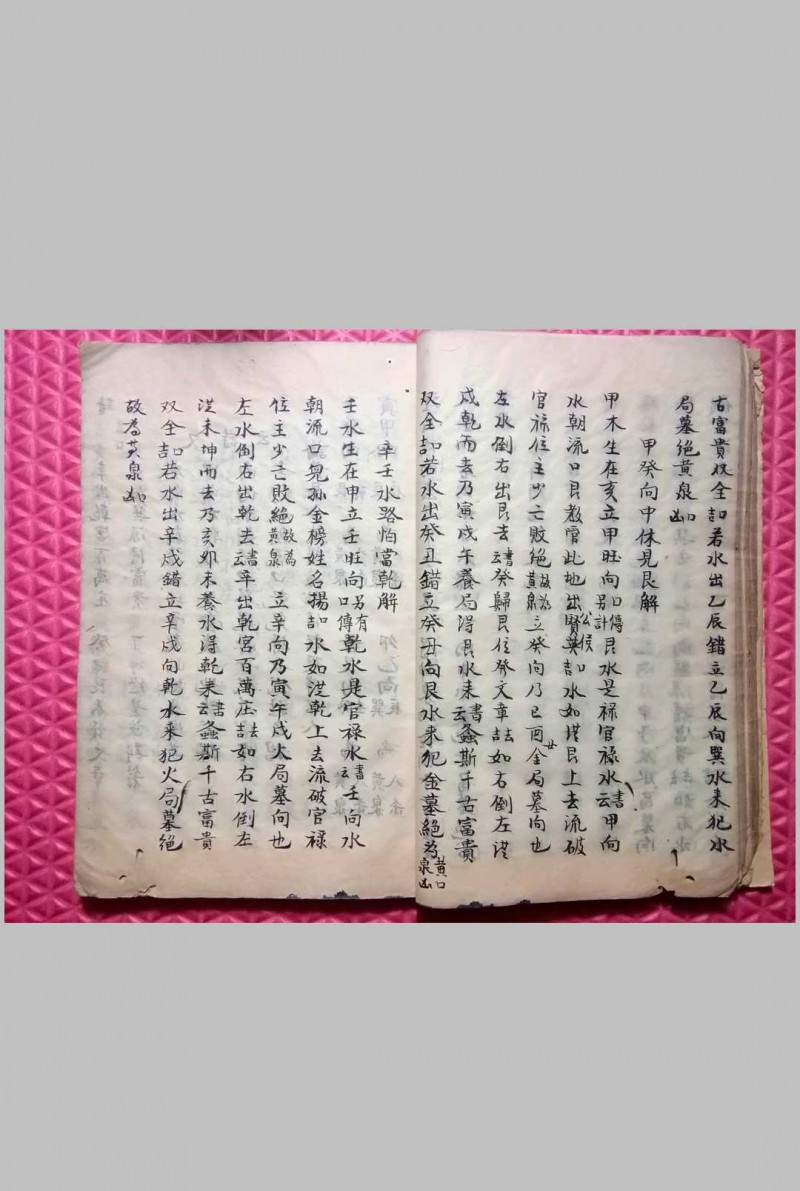 古富貴双全吉如若水出乙辰錯立乙辰向巽水来犯水
局墓絕黃泉凶
甲癸向中休見艮解
甲木生在亥立甲旺向口傳另計艮水是禄官禄水書云甲向
水朝流口艮教官此地出公侯賢英吉如水如從艮上去流破
官禄位主少亡敗絕故為黃泉立癸向乃巳酉丑金局墓向也
左水倒右出艮去書云癸歸艮位癸文章吉如右倒左從
戌乾而去乃寅戌午養局得艮水来書云螽斯千古富貴
双全吉如若水出癸丑錯立癸丑向艮水来犯金墓絕為黃泉凶
辛壬水路怕當乾解
壬水生在申立壬旺向另有口傳乾水是官禄水書云壬向水
朝流口兒孫金榜姓名揚吉如水如從乾上去流破官禄
位主少亡敗絕故為黃泉口立辛向乃寅午戌火局墓向也
左水倒右出乾去書云辛出乾宮百萬庄吉如右水倒左
從未坤而去乃亥卯未養水得乾来書云螽斯千古富貴
双全吉如若水出辛戌錯立辛戌向乾水来犯火局墓絕
故為黃泉凶